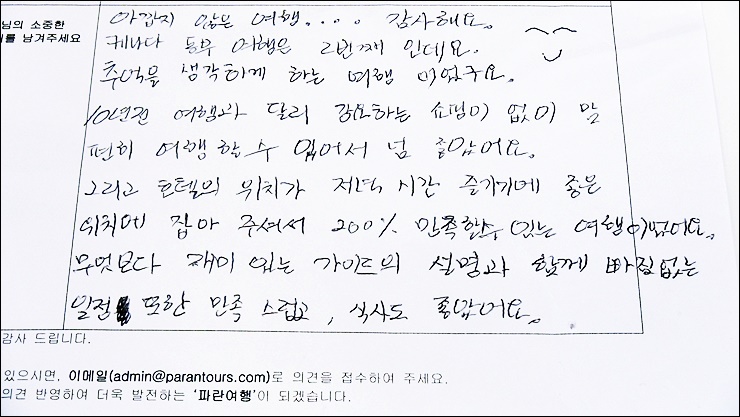 님의 소중한
를 남겨주세요
아깝지 않은 여행.... 감사해요.
캐나다 동부 여행은 2번째 인데요.
추억을 생각하게 하는 여행 이었구요.
10년전 여행과 달리 강요하는 쇼핑이 없이 맘
편히 여행 할수 있어서 넘 좋았어요.
그리고 호텔의 위치가 저녁 시간 즐기기에 좋은
위치에 잡아 주셔서 200% 만족할수 있는 여행이었어요.
무엇보다 재미 있는 가이드의 설명과 함께 빠짐없는
일정 또한 만족 스럽고, 식사도 좋았어요.
감사 드립니다.
있으시면, 이메일(admin@parantours.com)로 의견을 접수하여 주세요.
의견 반영하여 더욱 발전하는 '파란여행'이 되겠습니다.